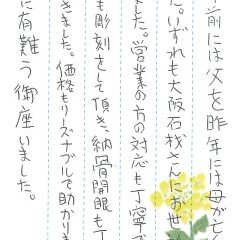 前には父を昨年には母が亡く
た。いずれも大阪石材さんにお世
ました。営業の方の対応も丁寧で
も彫刻をして頂き、納骨開眼も丁
きました。価格もリーズナブルで助かりま
に有難う御座いました。